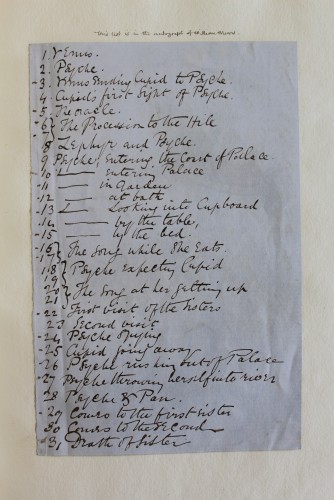 This list is in the autograph of William Morris.
1. Venus.
2. Psyche.
-3. Venus sending Cupid to Psyche.
4. Cupid's first sight of Psyche.
-5. The oracle.
-6 } The Procession to the Hill
7
8 Zephyr and Psyche.
9 Psyche Entering the Court of Pallace.
10 —— entering Palace
-11 —— in Garden
12 —— at bath
-13 —— Looking into Cupboard
14 —— by the table,
-15 —— by the bed.
-16 } The Song while She Eats.
-17
18 } Psyche expecting Cupid
19
20 } The Song at her getting up
21
-22 First visit of the Sisters
23 Second visit
-24 Psyche spying
-25 Cupid going away
-26 Psyche rushing out of Palace
-27 Psyche throwing herself into river
28 Psyche & Pan.
-29 Comes to the first sister
30 Comes to the Second
-31 Death of Sister